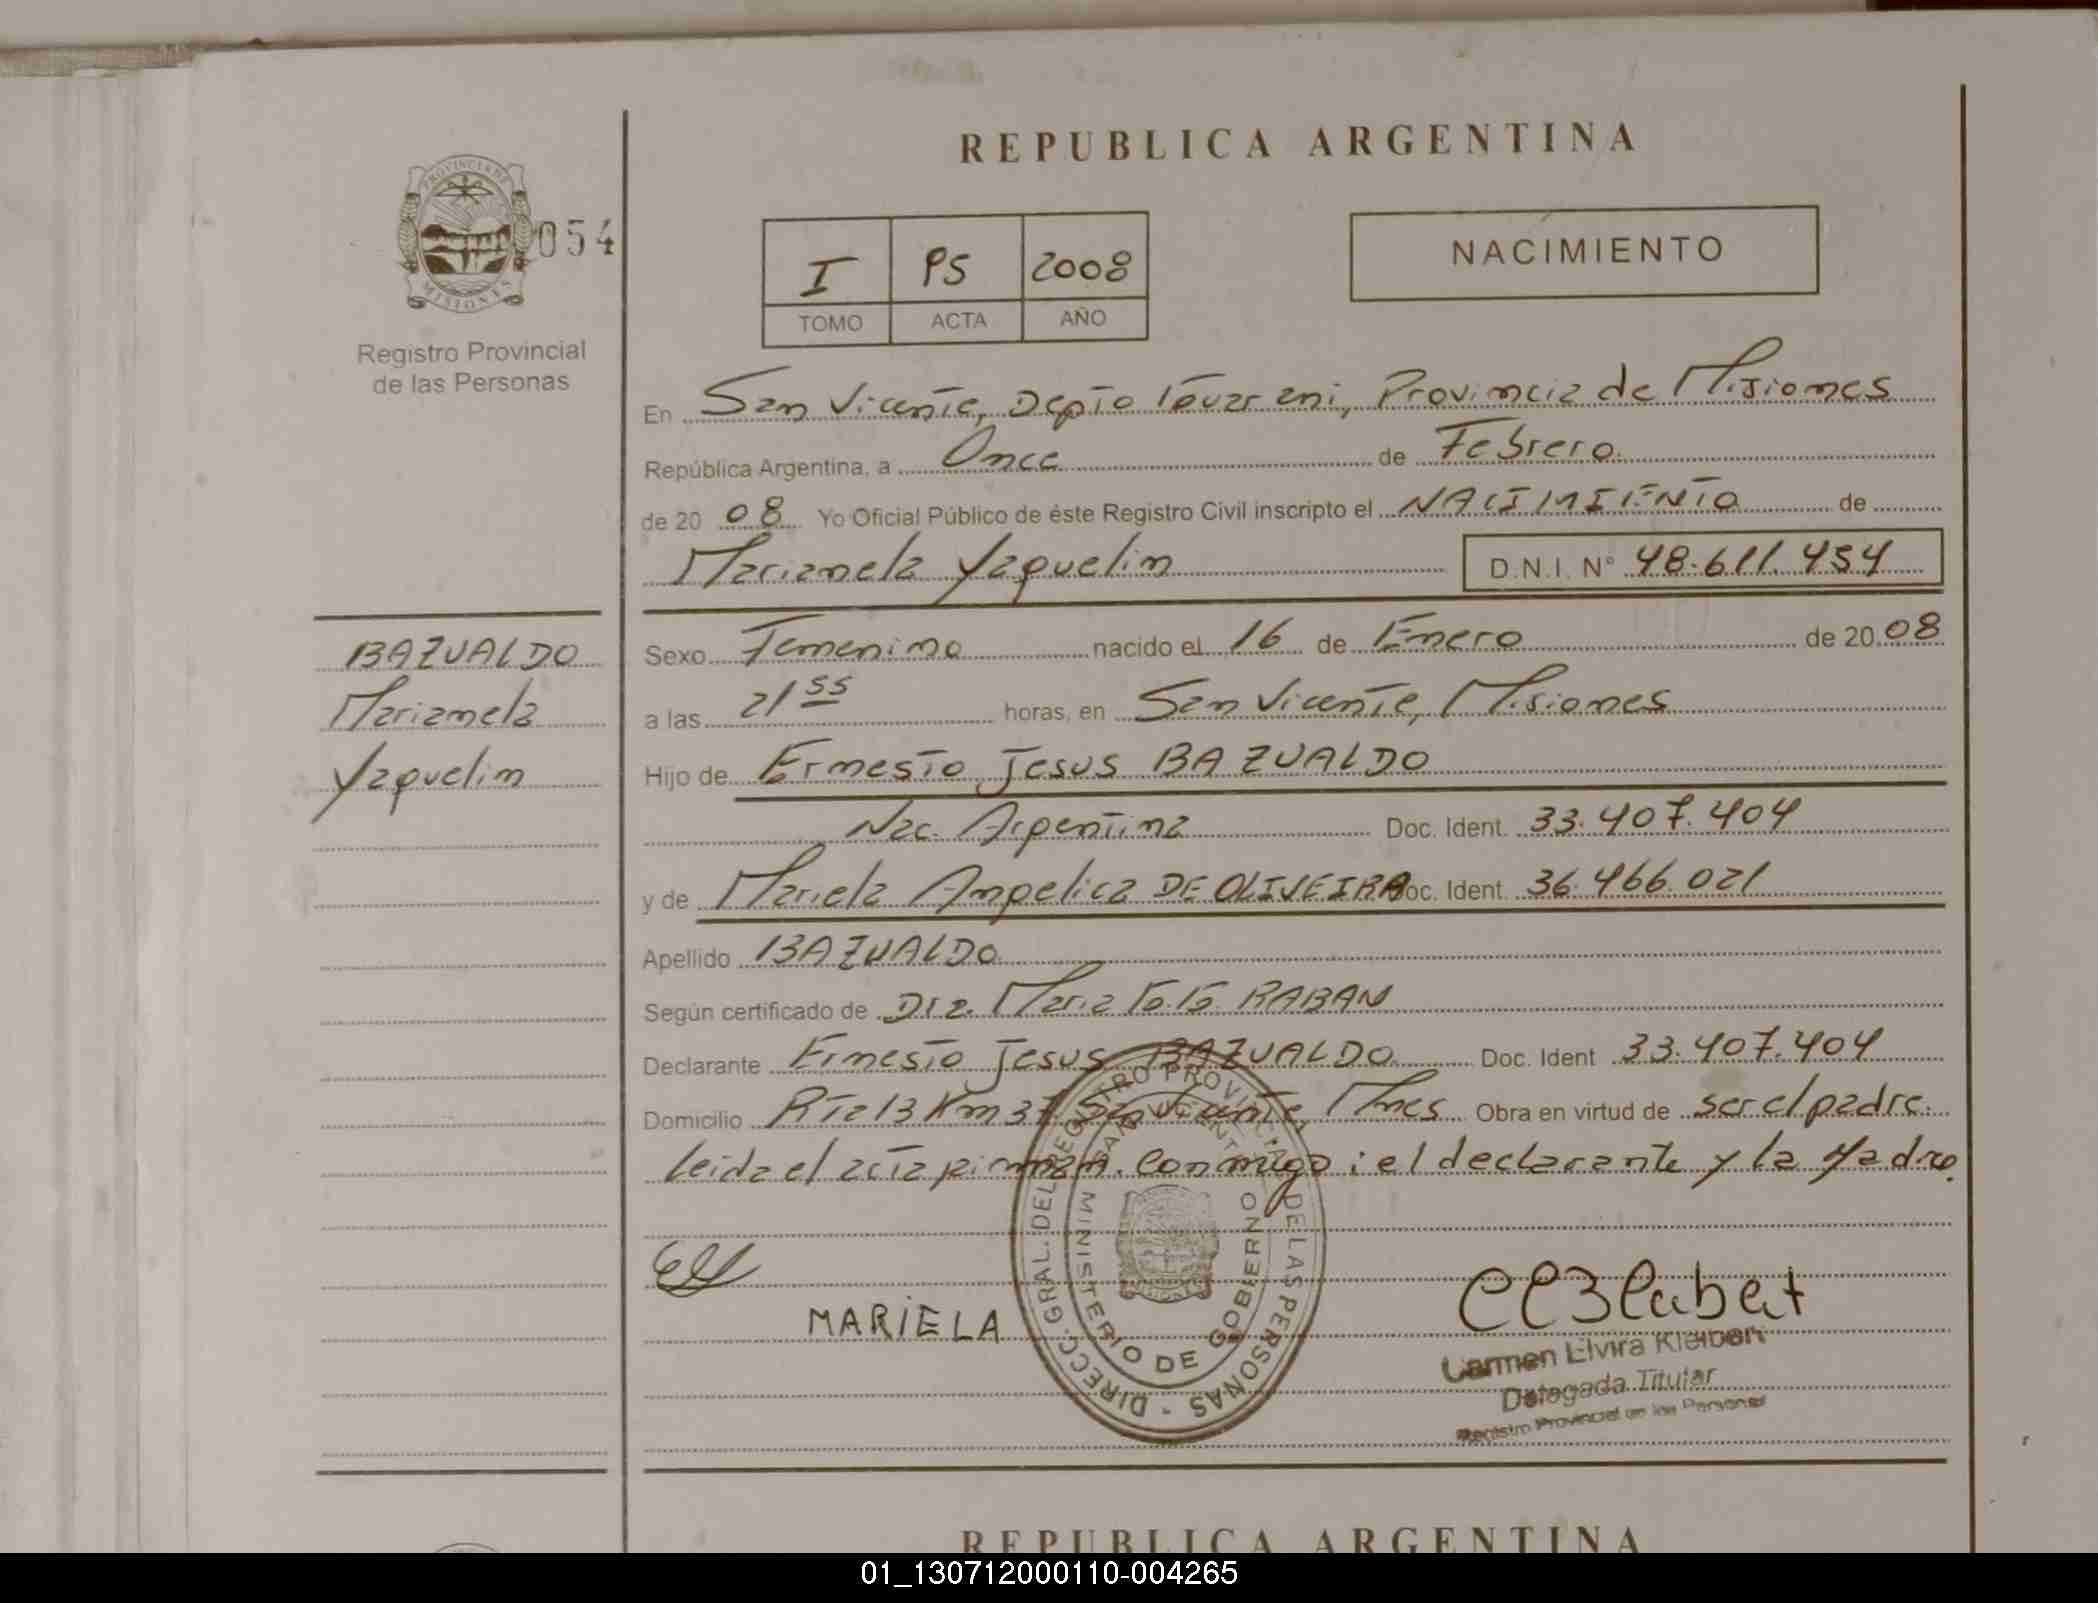 REPUBLICA ARGENTINA
PROVINCIA DE
MISIONES
054
I PS 2008
TOMO ACTA AÑO
NACIMIENTO
Registro Provincial
de las Personas
En San Vicente, Depto Guarani, Provincia de Misiones
República Argentina, a Once de Febrero
de 20 08 Yo Oficial Público de éste Registro Civil inscripto el NACIMIENTO de
Marianela Yaquelin D.N.I. Nº 48.611.454
BAZUALDO
Marianela
Yaquelin
Sexo Femenino nacido el 16 de Enero de 20 08
a las 21 55 horas, en San Vicente, Misiones
Hijo de Ernesto Jesus BAZUALDO
Nac. Argentina Doc. Ident. 33.407.404
y de Mariela Angelica DE OLIVEIRA Doc. Ident. 36.466.021
Apellido BAZUALDO
Según certificado de Dra. Maria G. G. RABAN
Declarante Ernesto Jesus BAZUALDO Doc. Ident 33.407.404
Domicilio Rta 13 Km 37 San Vicente, Mnes Obra en virtud de ser el padre.
leida el acta firman. Conmigo: el declarante y la Madre.
DIRECC. GRAL. DEL REGISTRO PROVINCIAL DE LAS PERSONAS -
SAN VICENTE
MINISTERIO DE GOBIERNO
MISIONES
MARIELA
Carmen Elvira Kleibert
Delegada Titular
Registro Provincial de las Personas
REPUBLICA ARGENTINA
01_130712000110-004265